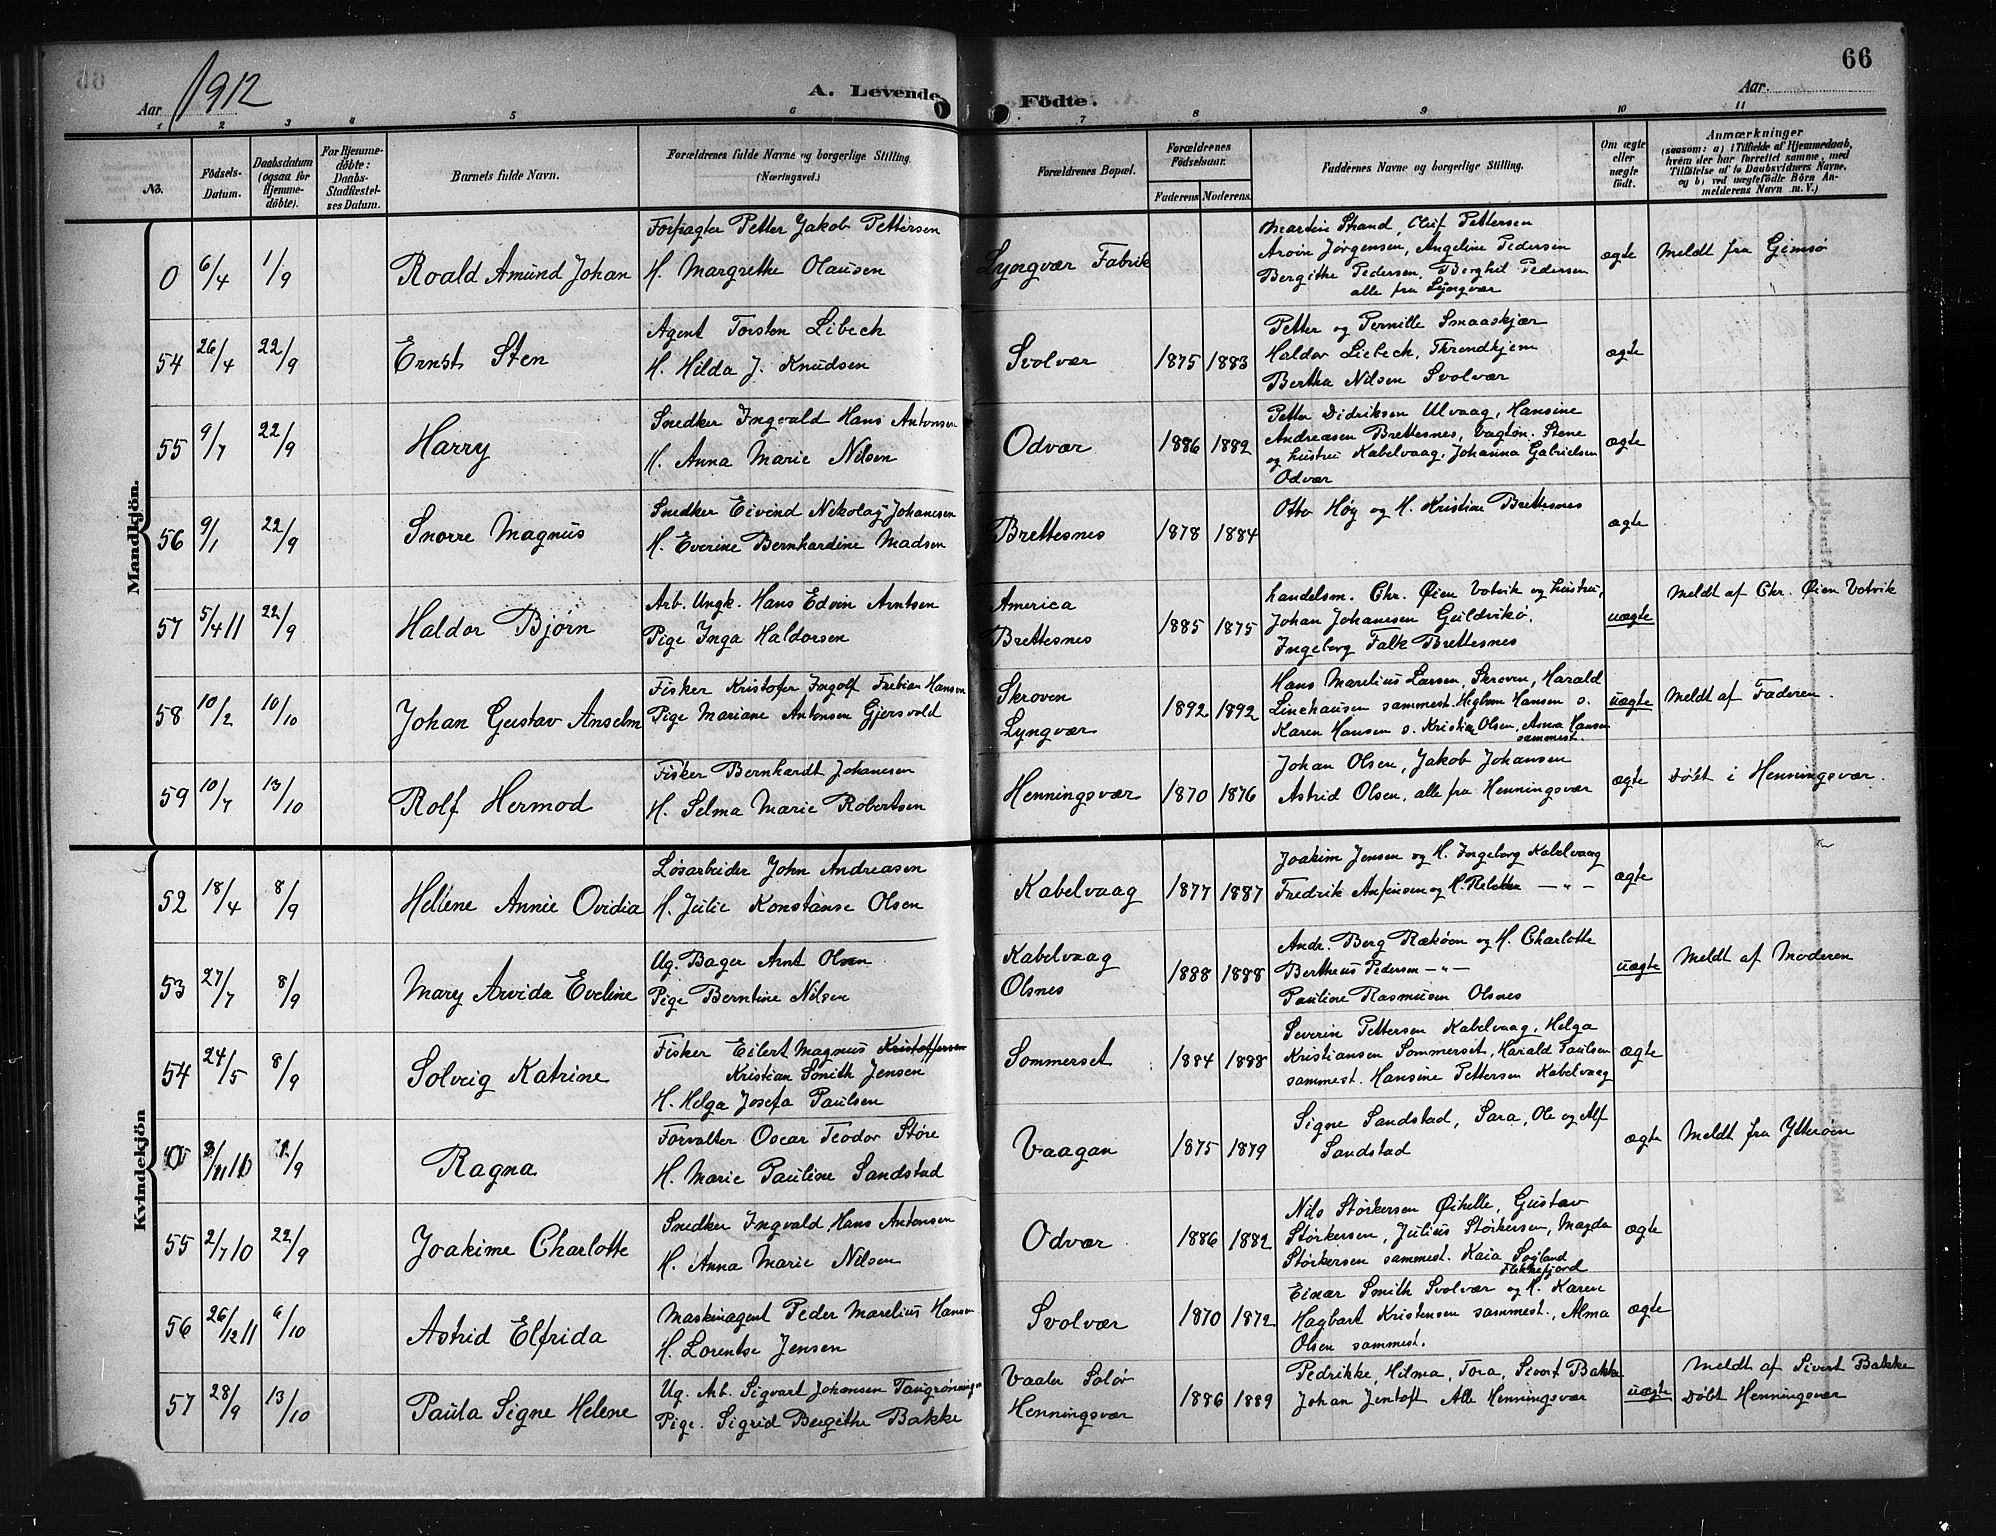 Aar 1912
A. Levende Födte.
Aar
66
1 2 3 4 5 6 7 8 9 10 11
No.
Födsels-Datum.
Daabsdatum (ogsaa for Hjemme-döbte).
For Hjemme-döbte: Daabs-Stadfæstel-ses Datum.
Barnets fulde Navn.
Forældrenes fulde Navne og borgerlige Stilling. (Næringsvei.)
Forældrenes Bopæl.
Forældrenes Födselsaar.
Faderens Moderens
Faddernes Navne og borgerlige Stilling.
Om ægte eller uægte födt.
Anmærkninger
(saasom: a) i Tilfælde af Hjemmedaab,
hvem der har forrettet samme, med
Tilföielse af to Daabsvidners Navne,
og b) ved uægtefödte Börn An-
melderens Navn m. V.)
Mandkjön.
Forpagter Petter Jakob Pettersen
0 6/4 1/9 Roald Amund Johan H. Margrethe Olausen
Lyngvær Fabrik
Martin Strand, Oluf Pettersen
Arvin Jørgensen, Angeline Pedersen
Bergithe Pedersen, Berghil Pedersen
alle fra Lyngvær
ægte Meldt fra Gimsø
Agent Torsten Libeck
54 26/4 22/9 Ernst Sten H. Hilda J. Knudsen
Svolvær 1875 1883
Petter og Pernille Smaaskjær
Haldor Liebeck, Throndhjem
Bertha Nilsen Svolvær
ægte
Snedker Ingvald Hans Antonsen
55 9/7 22/9 Harry H. Anna Marie Nilsen
Odvær 1886 1882
Petter Didriksen Ulvaag, Hansine
Andreasen Brettesnes, Vagtøn. Stene
og hustru Kabelvaag, Johanna Gabrielsen
Odvær
ægte
Snedker Eivind Nikolay Johanesen
56 9/1 22/9 Snorre Magnus H. Everine Bernhardine Madsen
Brettesnes 1878 1884
Otto Høy og H. Kristine Brettesnes
ægte
Arb. Ungk. Hans Edvin Arntsen
57 5/4 11 22/9 Haldor Bjørn Pige Inga Haldorsen
America
Brettesnes 1885 1875
handelsm. Chr. Øien Votvik og hustru,
Johan Johanesen Guldvikø,
Ingeborg Falk Brettesnes
uægte Meldt af Chr. Øien Votvik
Fisker Kristofer Ingolf Frebian Hansen
58 10/2 10/10 Johan Gustav Anselm Pige Mariane Antonsen Gjersvold
Skroven
Lyngvær 1892 1892
Hans Marelius Larsen, Skroven, Harald
Linehausen sammest. Hegbom Hansen s.
Karen Hansen s. Kristian Olsen, Anna Hansen
sammest.
uægte Meldt af Faderen.
Fisker Bernhardt Johanesen
59 10/7 13/10 Rolf Hermod H. Selma Marie Robertsen
Henningsvær 1870 1876
Johan Olsen, Jakob Johansen
Astrid Olsen, alle fra Henningsvær
ægte Døbt i Henningsvær.
Kvindekjön
Løsarbeider John Andreasen
52 18/4 8/9 Hellene Annie Ovidia H. Julie Konstanse Olsen
Kabelvaag 1877 1887
Joakim Jensen og H. Ingeborg Kabelvaag
Fredrik Anfinsen og H. Rebekka — „ —
ægte
Ug. Bager Arnt Olsen
53 27/7 8/9 Mary Arvida Eveline Pige Berntine Nilsen
Kabelvaag
Olsnes 1888 1888
Andr. Berg Rækøen og H. Charlotte
Bertheus Pedersen — „ —
Pauline Rasmusen Olsnes
uægte Meldt af Moderen
Fisker Eilert Magnus Kristoffersen
Kristian Smith Jensen
54 24/5 8/9 Solveig Katrine H. Helga Josefa Paulsen
Sommerset 1884 1888
Severin Pettersen Kabelvaag, Helga
Kristiansen Sommerset, Harald Paulsen
sammest. Hansine Pettersen Kabelvaag
ægte
Forvalter Oscar Teodor Støre
0 /11 10 /9 Ragna H. Marie Pauline Sandstad
Vaagan 1875 1879
Signe Sandstad, Sara, Ole og Alf
Sandstad
ægte Meldt fra Ytterøen
Snedker Ingvald Hans Antonsen
55 2/7 10 22/9 Joakime Charlotte H. Anna Marie Nilsen
Odvær 1886 1882
Nils Størkersen Øihelle, Gustav
Størkersen, Julius Størkersen, Magda
Størkersen sammest. Kaia Sogland
Flekkefjord
ægte
Maskinagent Peder Marelius Hansen
56 26/12 11 6/10 Astrid Elfrida H. Lorentse Jensen
Svolvær 1870 1872
Einar Smith Svolvær og H. Karen
Hagbart Kristensen sammest., Alma
Olsen sammest.
ægte
Ug. Arb. Sigvart Johansen Taugrønninge
57 28/9 13/10 Paula Signe Helene Pige. Sigrid Bergithe Bakke
Vaaler Solør
Henningsvær 1886 1889
Pedrikke, Hilma, Tora, Sivert Bakke
Johan Jentoft Alle Henningsvær
uægte Meldt af Sivert Bakke
Døbt Henningsvær